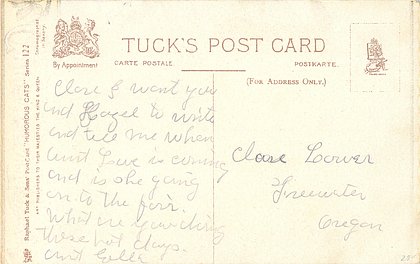 TUCK'S POST CARD
CARTE POSTALE
POSTKARTE.
(FOR ADDRESS ONLY.)
By Appointment
Raphael Tuck & Sons' PostCard "HUMOROUS CATS" Series 122
ART PUBLISHERS TO THEIR MAJESTIES THE KING & QUEEN
Chromographed in Saxony
Clare I want you
and Hazel to write
and tell me when
aunt is coming
and is she going
on to the fair.
What are you doing
these hot days.
aunt Ella
Clare
Freewater
Oregon